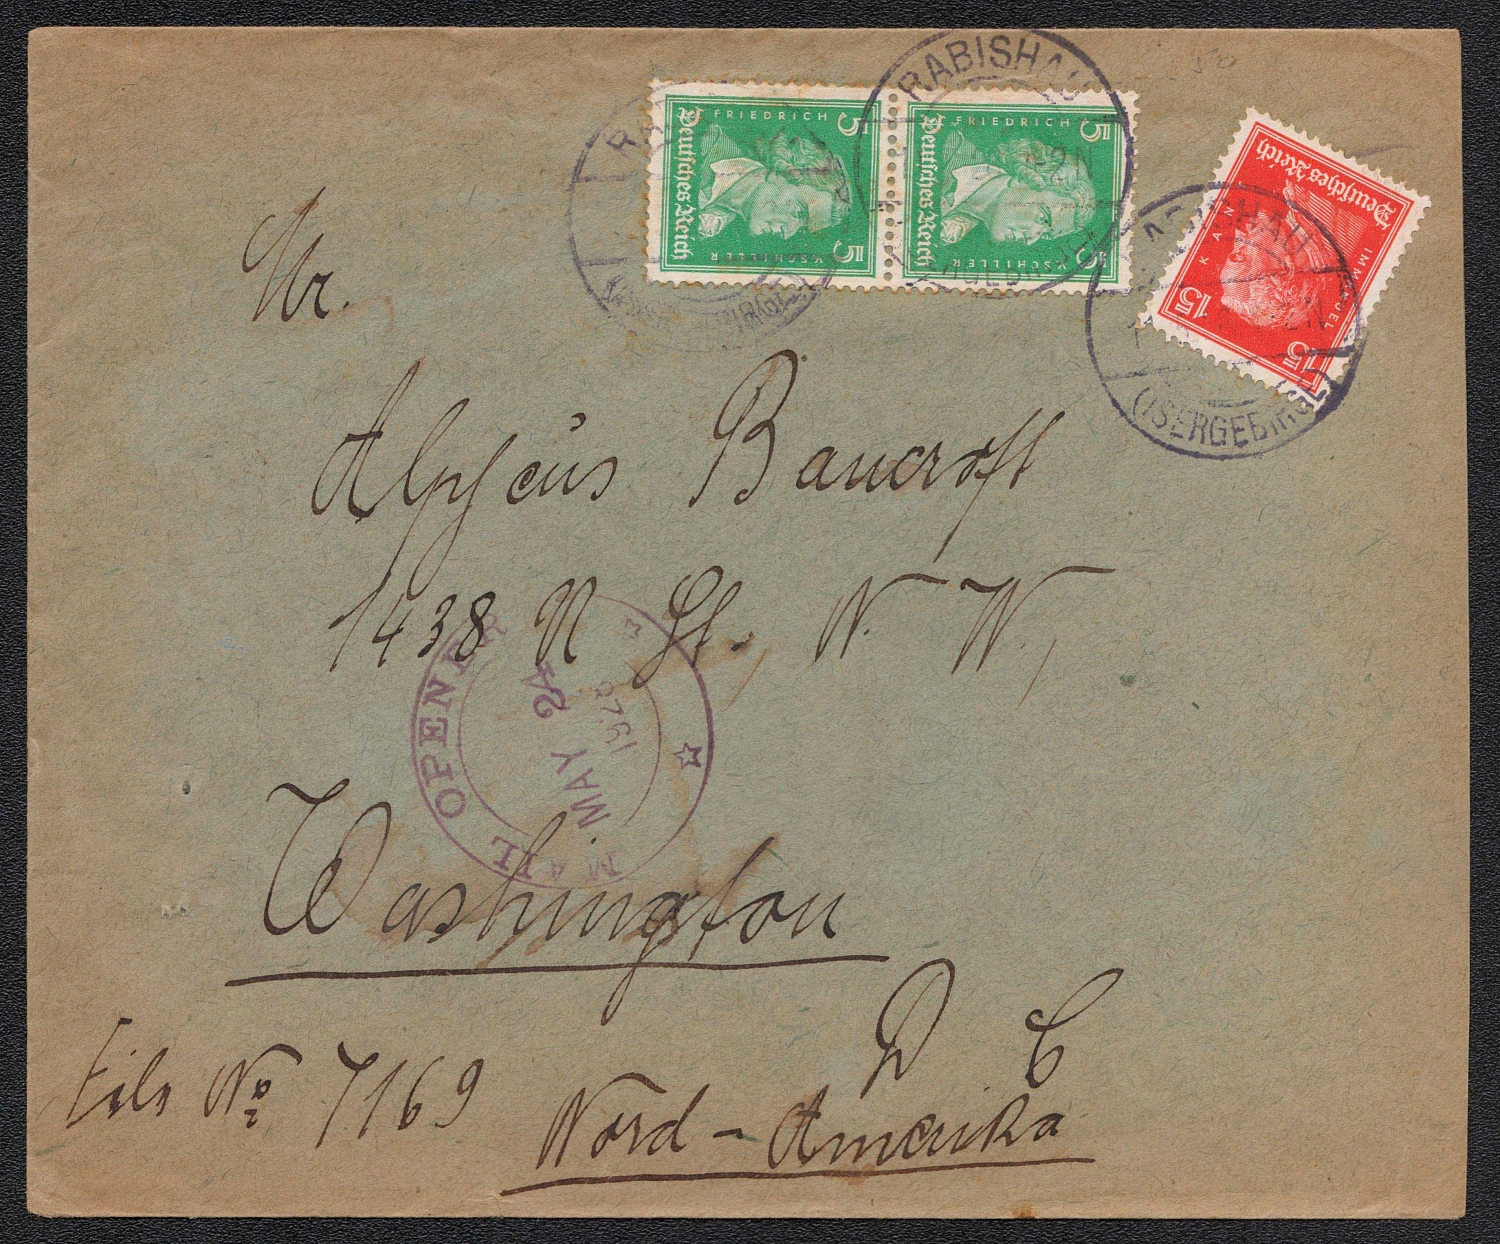 RABISHAU
FRIEDRICH
5
Deutsches Reich
V. SCHILLER
5
RABISHAU
-2N
FRIEDRICH
5
Deutsches Reich
V. SCHILLER
5
Deutsches Reich
IMMANUEL
KANT
15
15
RABISHAU
(ISERGEBIRGE)
Mr.
Alpheus Bancroft
1438 N St. N. W.,
MAIL OPENER
MAY 24
Washington
D C
File No 7169
Nord-Amerika